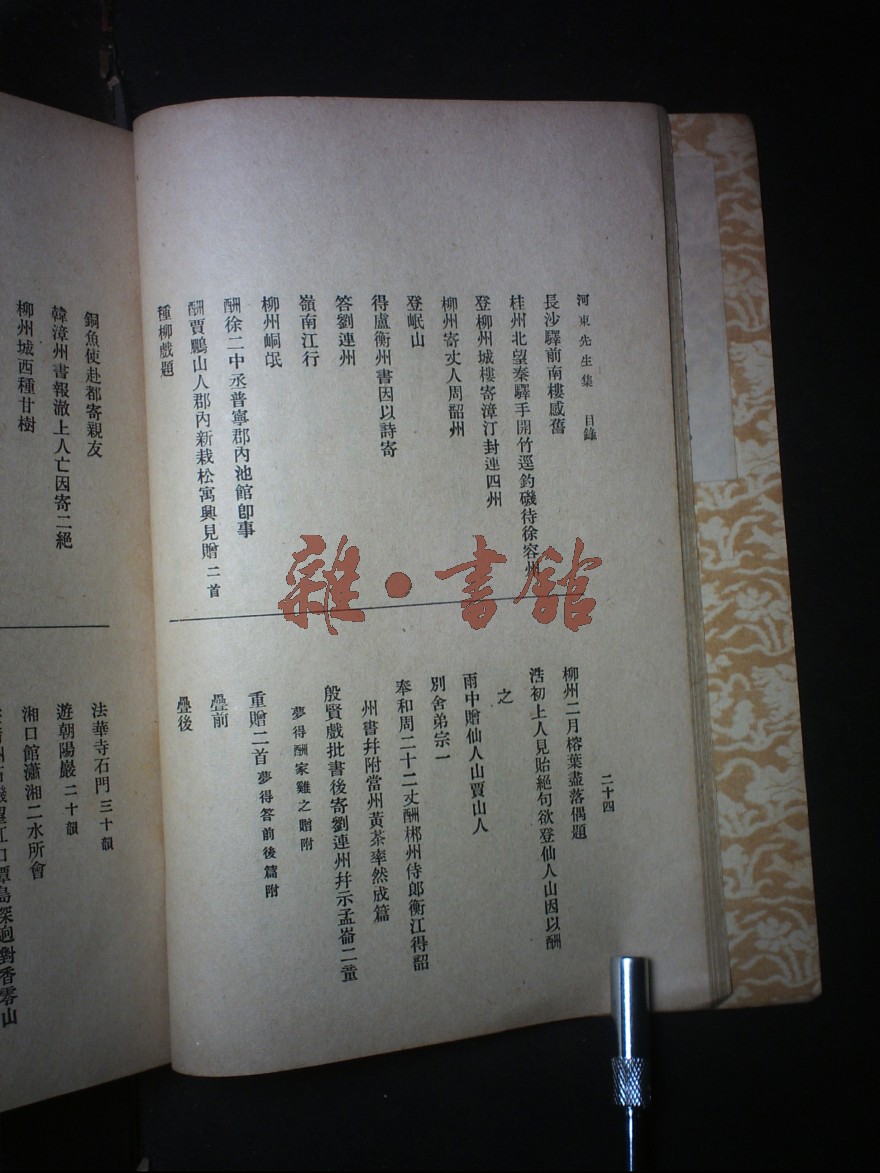 河東先生集 目錄
長沙驛前南樓感舊
桂州北望秦驛手開竹逕釣磯待徐容州
登柳州城樓寄漳汀封連四州
柳州寄丈人周韶州
登岷山
得盧衡州書因以詩寄
答劉連州
嶺南江行
柳州峒氓
酬徐二中丞普寧郡內池館卽事
酬賈鵬山人郡內新栽松寓興見贈二首
種柳戲題
二十四
柳州二月榕葉盡落偶題
浩初上人見貽絕句欲登仙人山因以酬
之
雨中贈仙人山賈山人
別舍弟宗一
奉和周二十二丈酬郴州侍郎衡江得韶
州書幷附當州黃茶率然成篇
殷賢戲批書後寄劉連州幷示孟崙二童
夢得酬家雞之贈附
重贈二首夢得答前後篇附
疊前
疊後
銅魚使赴都寄親友
韓漳州書報澈上人亡因寄二絕
柳州城西種甘樹
法華寺石門三十韻
遊朝陽巖二十韻
湘口館瀟湘二水所會
潭島深逈對香零山
雜·書館